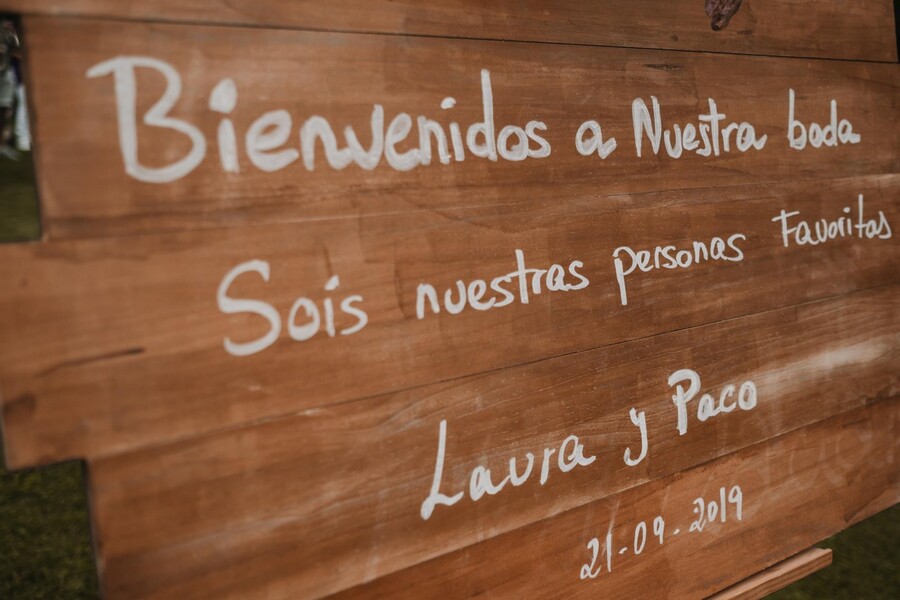 Bienvenidos a Nuestra boda
Sois nuestras personas Favoritas
Laura y Paco
21-09-2019